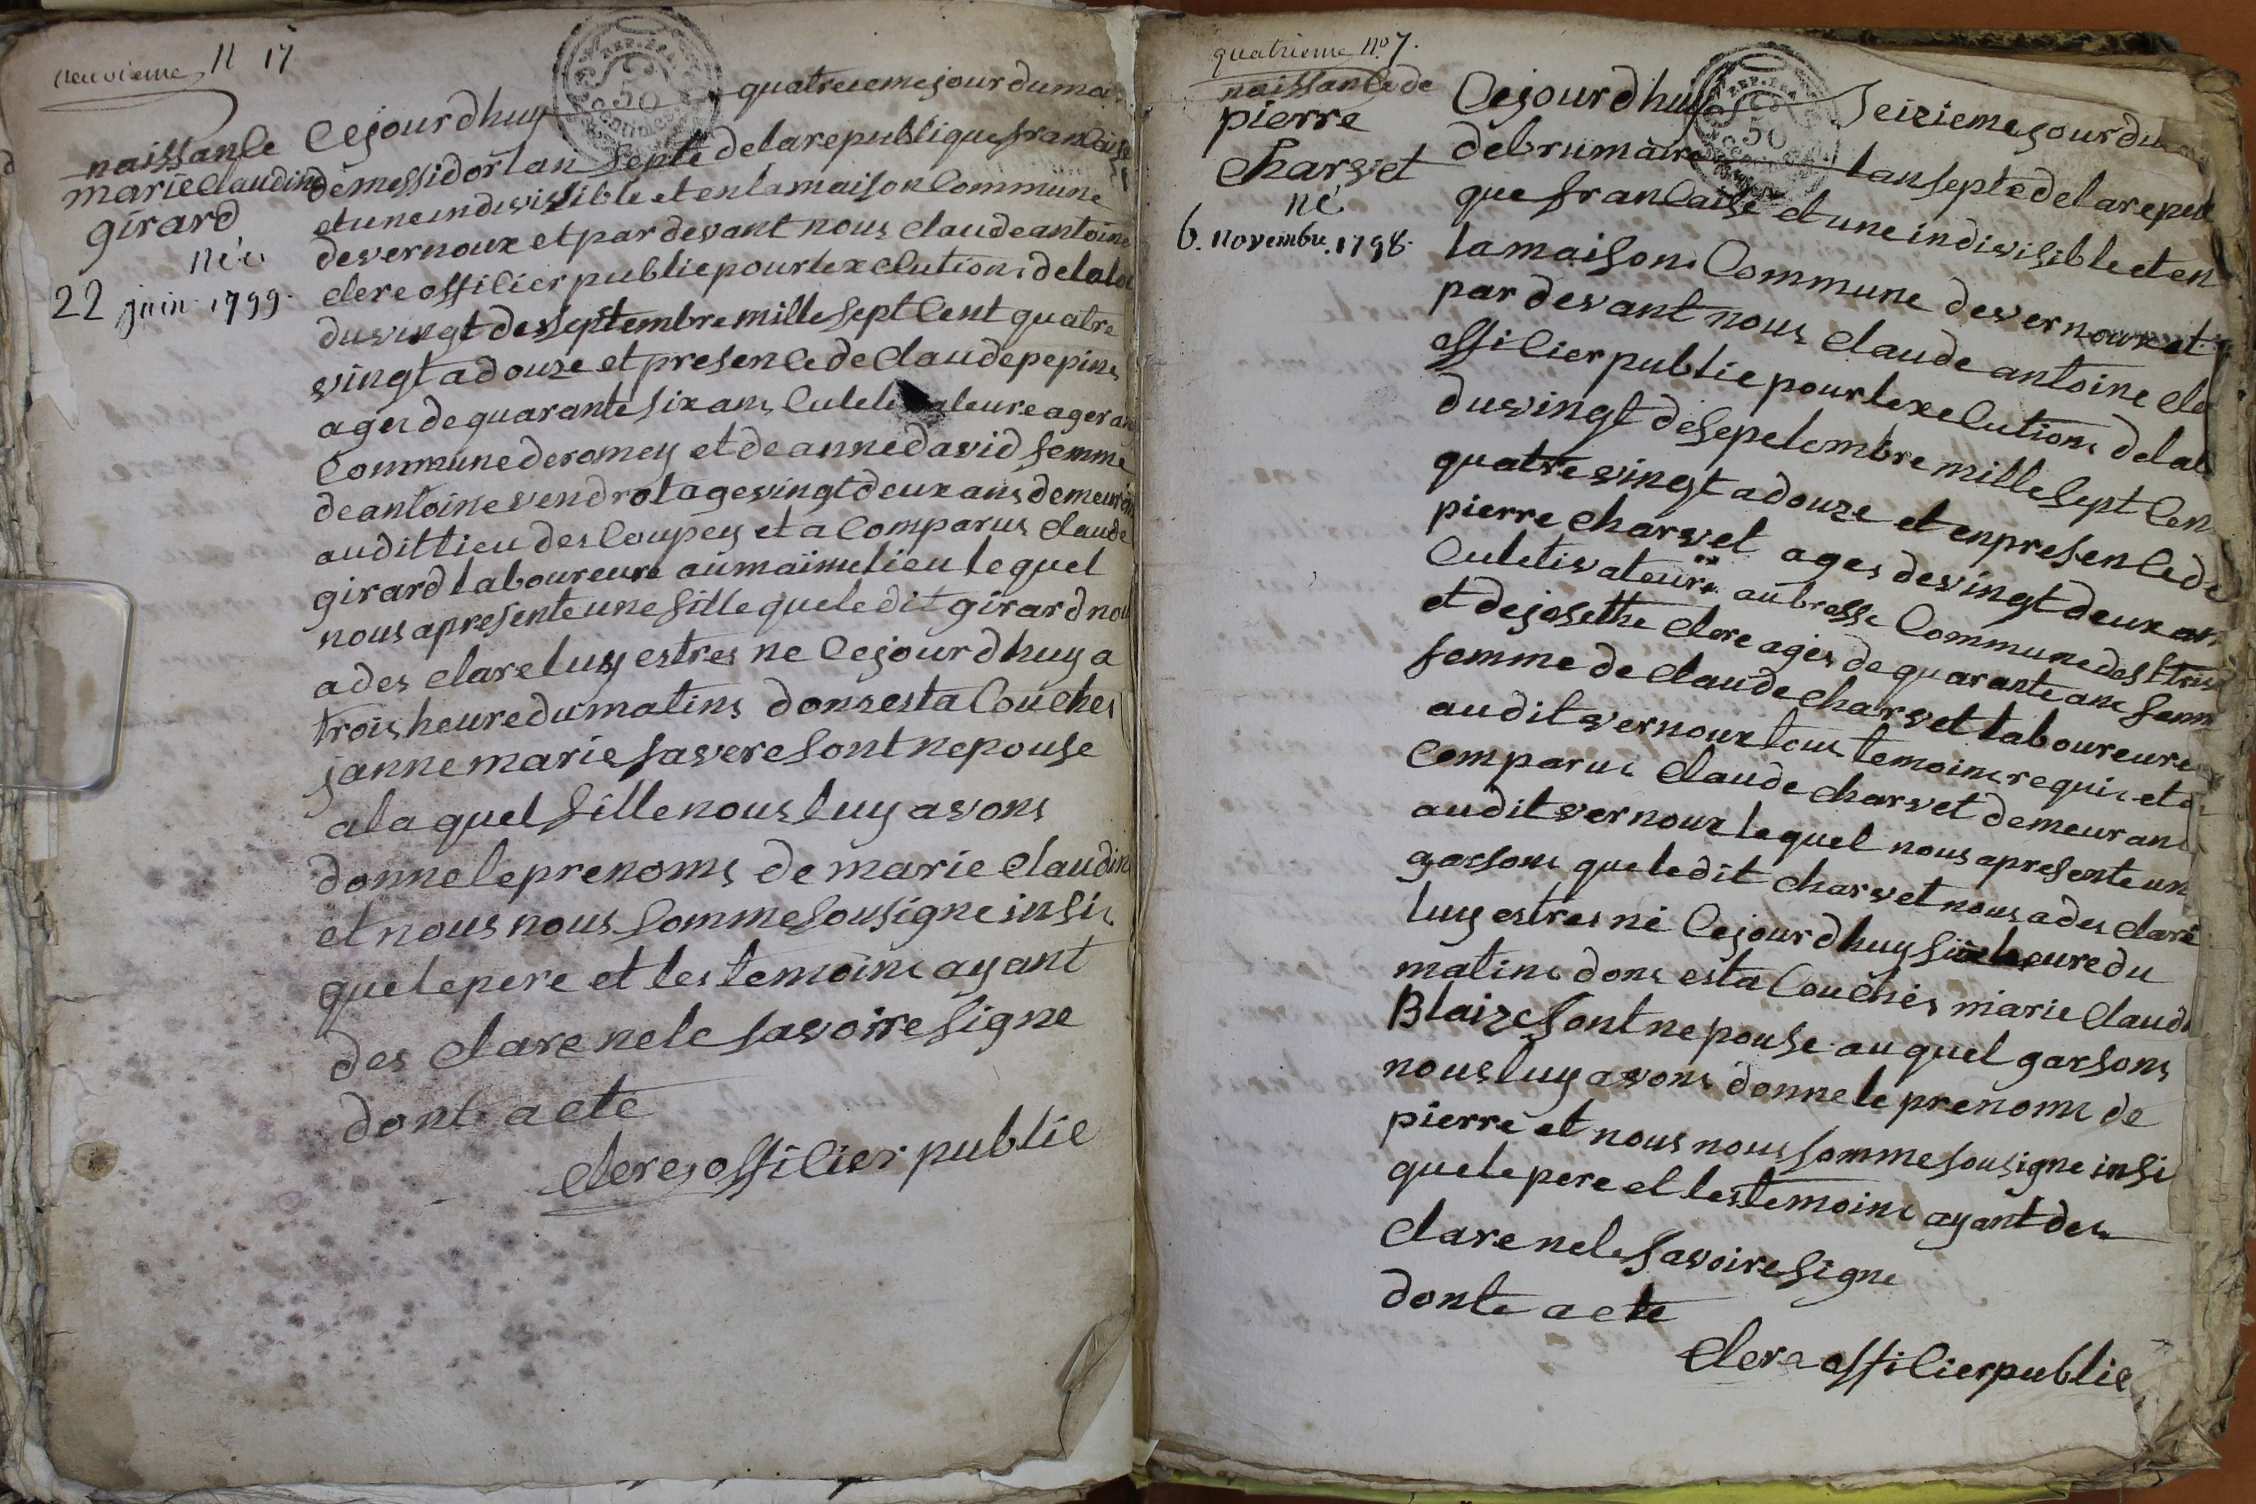 neuvieme N 17
naissance
marie Claudine
girard
née
22 juin 1799.
REP. FRA
50
centimes
Cejourdhuy quatrieme jour du moi
de messidor lan septe de la republique francaise
et une indivisible et en la maison Commune
de vernoux et par devant nous claude antoine
clere offilier publie pour lexelution de la loi
du vingt de septembre mille sept Cent quatre
vingt a douze et presence de Claude pepin
ages de quarante six ans
Commune de romey et de anne david femme
de antoine vendrot age vingt deux ans demeurant
audit lieu des Coupey et a Comparus claude
girard laboureure au maime lieu le quel
nous apresente une fille que le dit girard nou
a des clare luy estres ne Cejourdhuy a
trois heure du matins dons esta Couches
janne marie favere sont nepouse
a la quel fille nous luy avons
donne le prenoms de marie Claudine
et nous nous somme sousigne insi
que le pere et les temoins ayant
des clare ne le savoire signe
donte acte
cleres offilier publie
quatrieme No 7.
naissance de
pierre
Charvet
né
6. novembre 1798.
REP. FRA
50
centimes
Cejourdhuy seizieme jour du
de brumaire lan septe de la repu
que francaise et une indivisible et en
la maison Commune de vernoux et
par devant nous claude antoine cle
offilier publie pour lexelution de la
du vingt de sepetembre mille sept Cen
quatre vingt a douze et en presence de
pierre charvet ages de vingt deux an
Culetivateure au bresse Commune des
et de josethe clere ages de quarante ans
femme de claude charvet laboureure
audit vernoux tous temoins requis et a
Comparus claude charvet demeurant
audit vernoux le quel nous apresente un
garsons que le dit charvet nous a des clare
luy estres né Cejourdhuy heure du
matins dons esta Couchés marie claud
Blaize sont nepouse au quel garsons
nous luy avons donne le prenoms de
pierre et nous nous somme sousigne insi
que le pere et les temoins ayant des
clare ne le savoire signe
donte acte
clere offilier publie